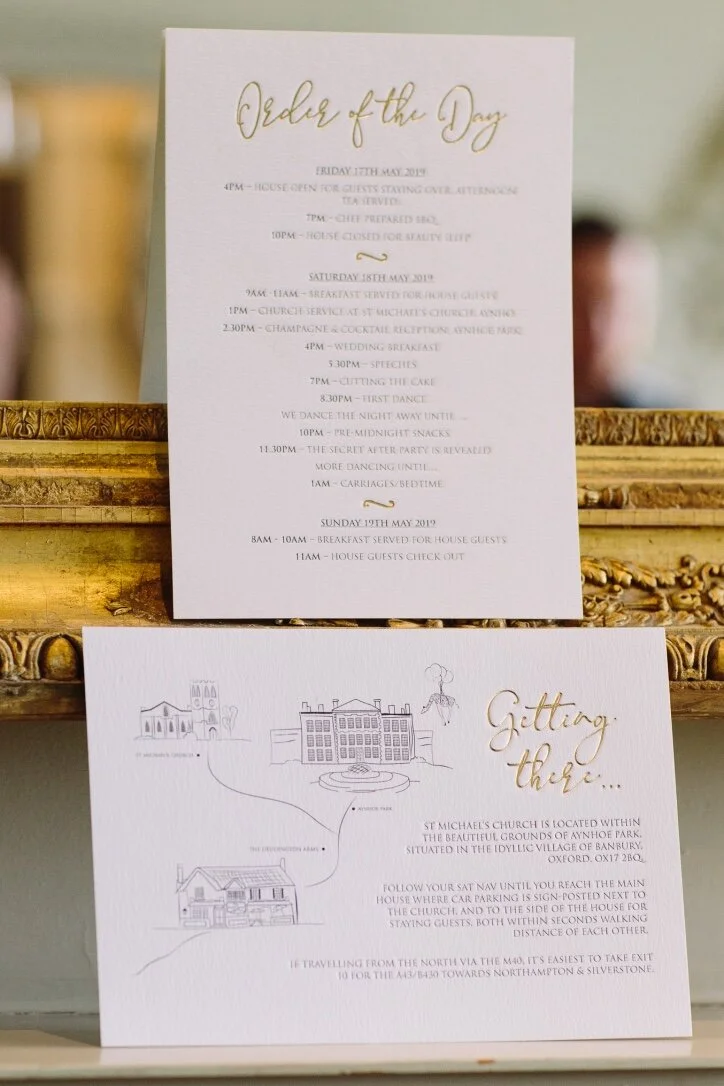 Order of the Day
FRIDAY 17TH MAY 2019
4PM – HOUSE OPEN FOR GUESTS STAYING OVER, AFTERNOON
TEA SERVED.
7PM – CHEF PREPARED BBQ
10PM – HOUSE CLOSED FOR BEAUTY SLEEP
SATURDAY 18TH MAY 2019
9AM - 11AM – BREAKFAST SERVED FOR HOUSE GUESTS
1PM – CHURCH SERVICE AT ST MICHAEL'S CHURCH, AYNHO.
2.30PM – CHAMPAGNE & COCKTAIL RECEPTION, AYNHOE PARK.
4PM – WEDDING BREAKFAST
5.30PM – SPEECHES
7PM – CUTTING THE CAKE
8.30PM – FIRST DANCE
WE DANCE THE NIGHT AWAY UNTIL ...
10PM – PRE-MIDNIGHT SNACKS
11.30PM – THE SECRET AFTER PARTY IS REVEALED
MORE DANCING UNTIL...
1AM – CARRIAGES/BEDTIME.
SUNDAY 19TH MAY 2019
8AM - 10AM – BREAKFAST SERVED FOR HOUSE GUESTS
11AM – HOUSE GUESTS CHECK OUT
Getting
there...
ST MICHAEL'S CHURCH
AYNHOE PARK
THE ARMS
ST MICHAEL'S CHURCH IS LOCATED WITHIN
THE BEAUTIFUL GROUNDS OF AYNHOE PARK,
SITUATED IN THE IDYLLIC VILLAGE OF BANBURY,
OXFORD, OX17 2BQ.
FOLLOW YOUR SAT NAV UNTIL YOU REACH THE MAIN
HOUSE WHERE CAR PARKING IS SIGN-POSTED NEXT TO
THE CHURCH, AND TO THE SIDE OF THE HOUSE FOR
STAYING GUESTS, BOTH WITHIN SECONDS WALKING
DISTANCE OF EACH OTHER.
IF TRAVELLING FROM THE NORTH VIA THE M40, IT'S EASIEST TO TAKE EXIT
10 FOR THE A43/B430 TOWARDS NORTHAMPTON & SILVERSTONE.